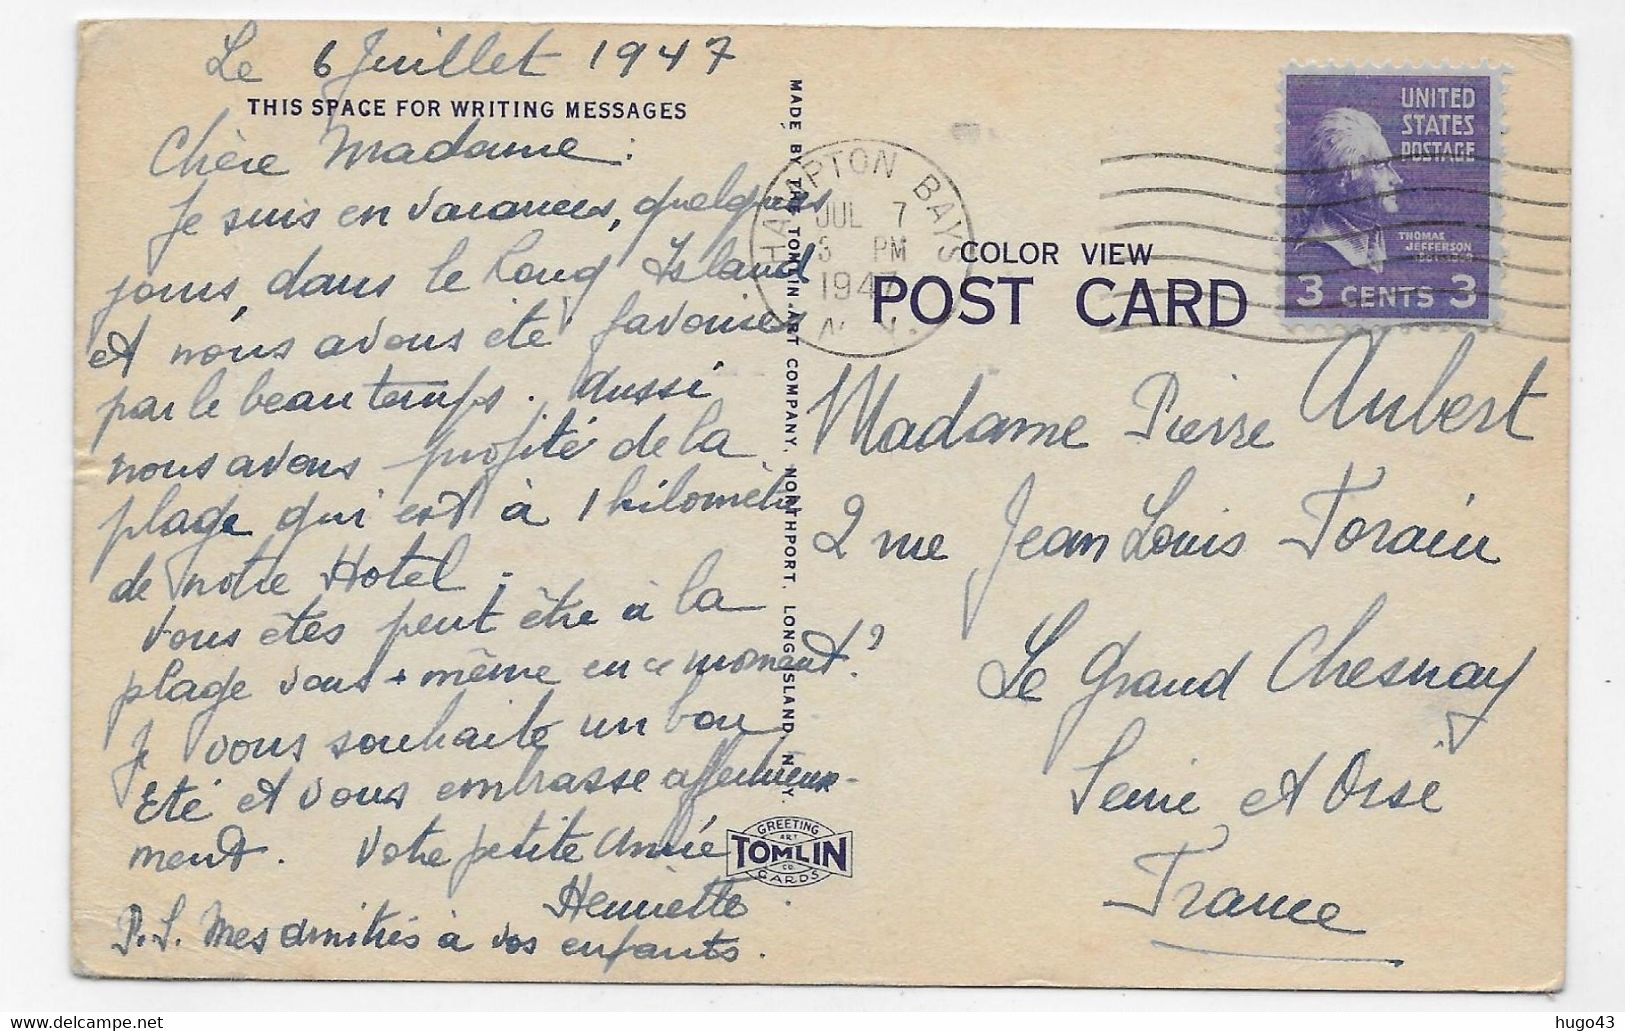 Le 6 Juillet 1947
THIS SPACE FOR WRITING MESSAGES
Chère Madame :
Je suis en vacances, quelques
jours, dans le Long Island
et nous avons été favorisés
par le beau temps. Aussi
nous avons profité de la
plage qui est à 1 kilomètre
de notre Hotel.
Vous êtes peut être à la
plage vous-même en ce moment ?
Je vous souhaite un bon
Eté et vous embrasse affectueuse-
ment. Votre petite Amie
Henriette.
P.S. Mes amitiés à vos enfants.
MADE BY THE TOMLIN ART COMPANY, NORTHPORT, LONG ISLAND, N.Y.
GREETING
ART
TOMLIN
CO
CARDS
HAMPTON BAYS
JUL 7
3 PM
1947
N.Y.
COLOR VIEW
POST CARD
UNITED
STATES
POSTAGE
THOMAS
JEFFERSON
3 CENTS 3
Madame Pierre Aubert
2 rue Jean Louis Forain
Le Grand Chesnay
Seine et Oise
France
hugo43